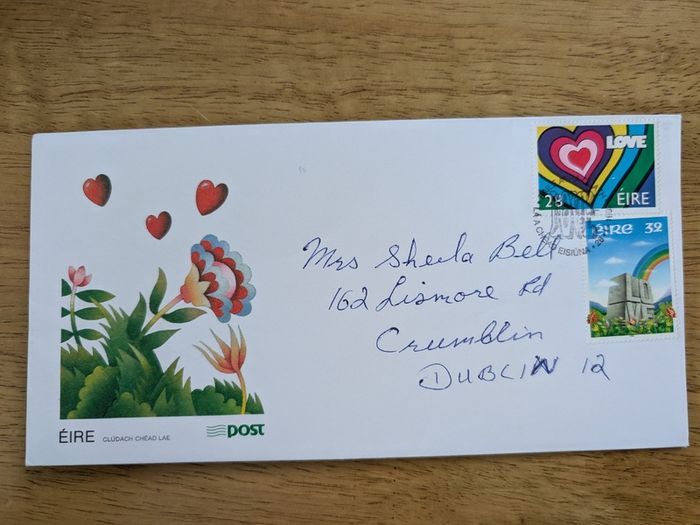 LOVE
28 ÉIRE
LÁ A CHÉAD EISIÚNA
ÉIRE 32
LOVE
Mrs Sheila Bell
162 Lismore Rd
Crumblin
DUBLIN 12
ÉIRE CLÚDACH CHÉAD LAE
post